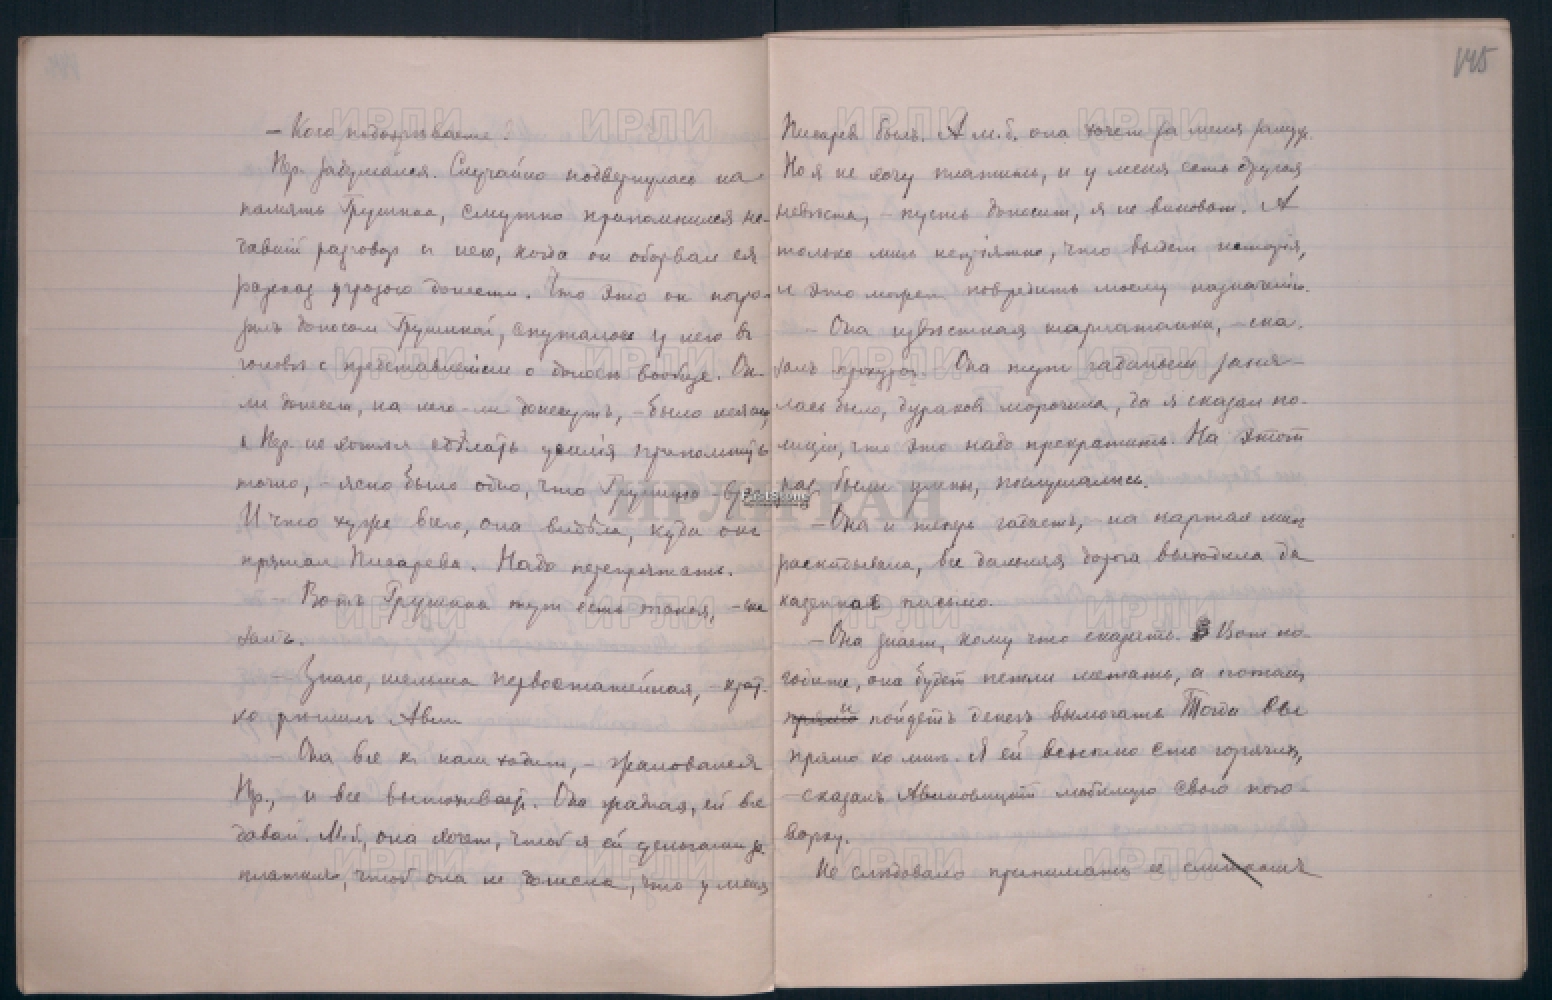 145
— Кого подозрѣваете?
Пр. задумался. Случайно подвернулась на
память Грушина, смутно припомнился не-
давній разговор с нею, когда он оборвал ея
разсказ угрозою донести. Что это он погро-
зилъ доносом Грушиной, спуталось у него въ
головѣ с представленіем о доносѣ вообще. Он-
ли донесет, на него-ли донесутъ, — было неясно,
и Пр. не хотѣл сдѣлать усилія припомнить
точно, — ясно было одно, что Грушина —
И что хуже всего, она видѣла, куда онъ
прятал Писарева. Надо перепрятать.
— Вотъ Грушина тут есть такая, — ска
залъ.
— Знаю, шельма первостатейная, — крат-
ко рѣшилъ Авин
— Она все к нам ходит, — жаловался
Пр., — и все вынюхивает. Она жадная, ей все
давай. М.б., она хочет, чтоб я ей деньгами за
платилъ, чтоб она не донесла, что у меня
Писарев былъ. А м.б. она хочет за меня замуж.
Но я не хочу платить, и у меня есть другая
невѣста, — пусть доносит, я не виноват. А
только мнѣ непріятно, что выйдет исторія,
и это может повредить моему назначенію.
— Она извѣстная шарлатанка, — ска-
залъ прокурор. Она тут гаданьем заня-
лась было, дураков морочила, да я сказал по-
лиціи, что это надо прекратить. На этот
раз были умны, послушались.
— Она и теперь гадаетъ, — на картах мнѣ
раскидывала, все дальняя дорога выходила да
казенное письмо.
— Она знает, кому что сказать. Вот по-
годите, она будет петли метать, а потом
и пойдетъ деньги вымогать. Тогда вы
прямо ко мнѣ. Я ей всыплю сто горячих,
— сказалъ Авиновицкій любимую свою пого-
ворку.
Не слѣдовало принимать ее слишкомъ
ИРЛИ ИРЛИ ИРЛИ ИРЛИ
ИРЛИ ИРЛИ ИРЛИ ИРЛИ
ИРЛИ РАН
ИРЛИ ИРЛИ ИРЛИ
ИРЛИ ИРЛИ ИРЛИ ИРЛИ